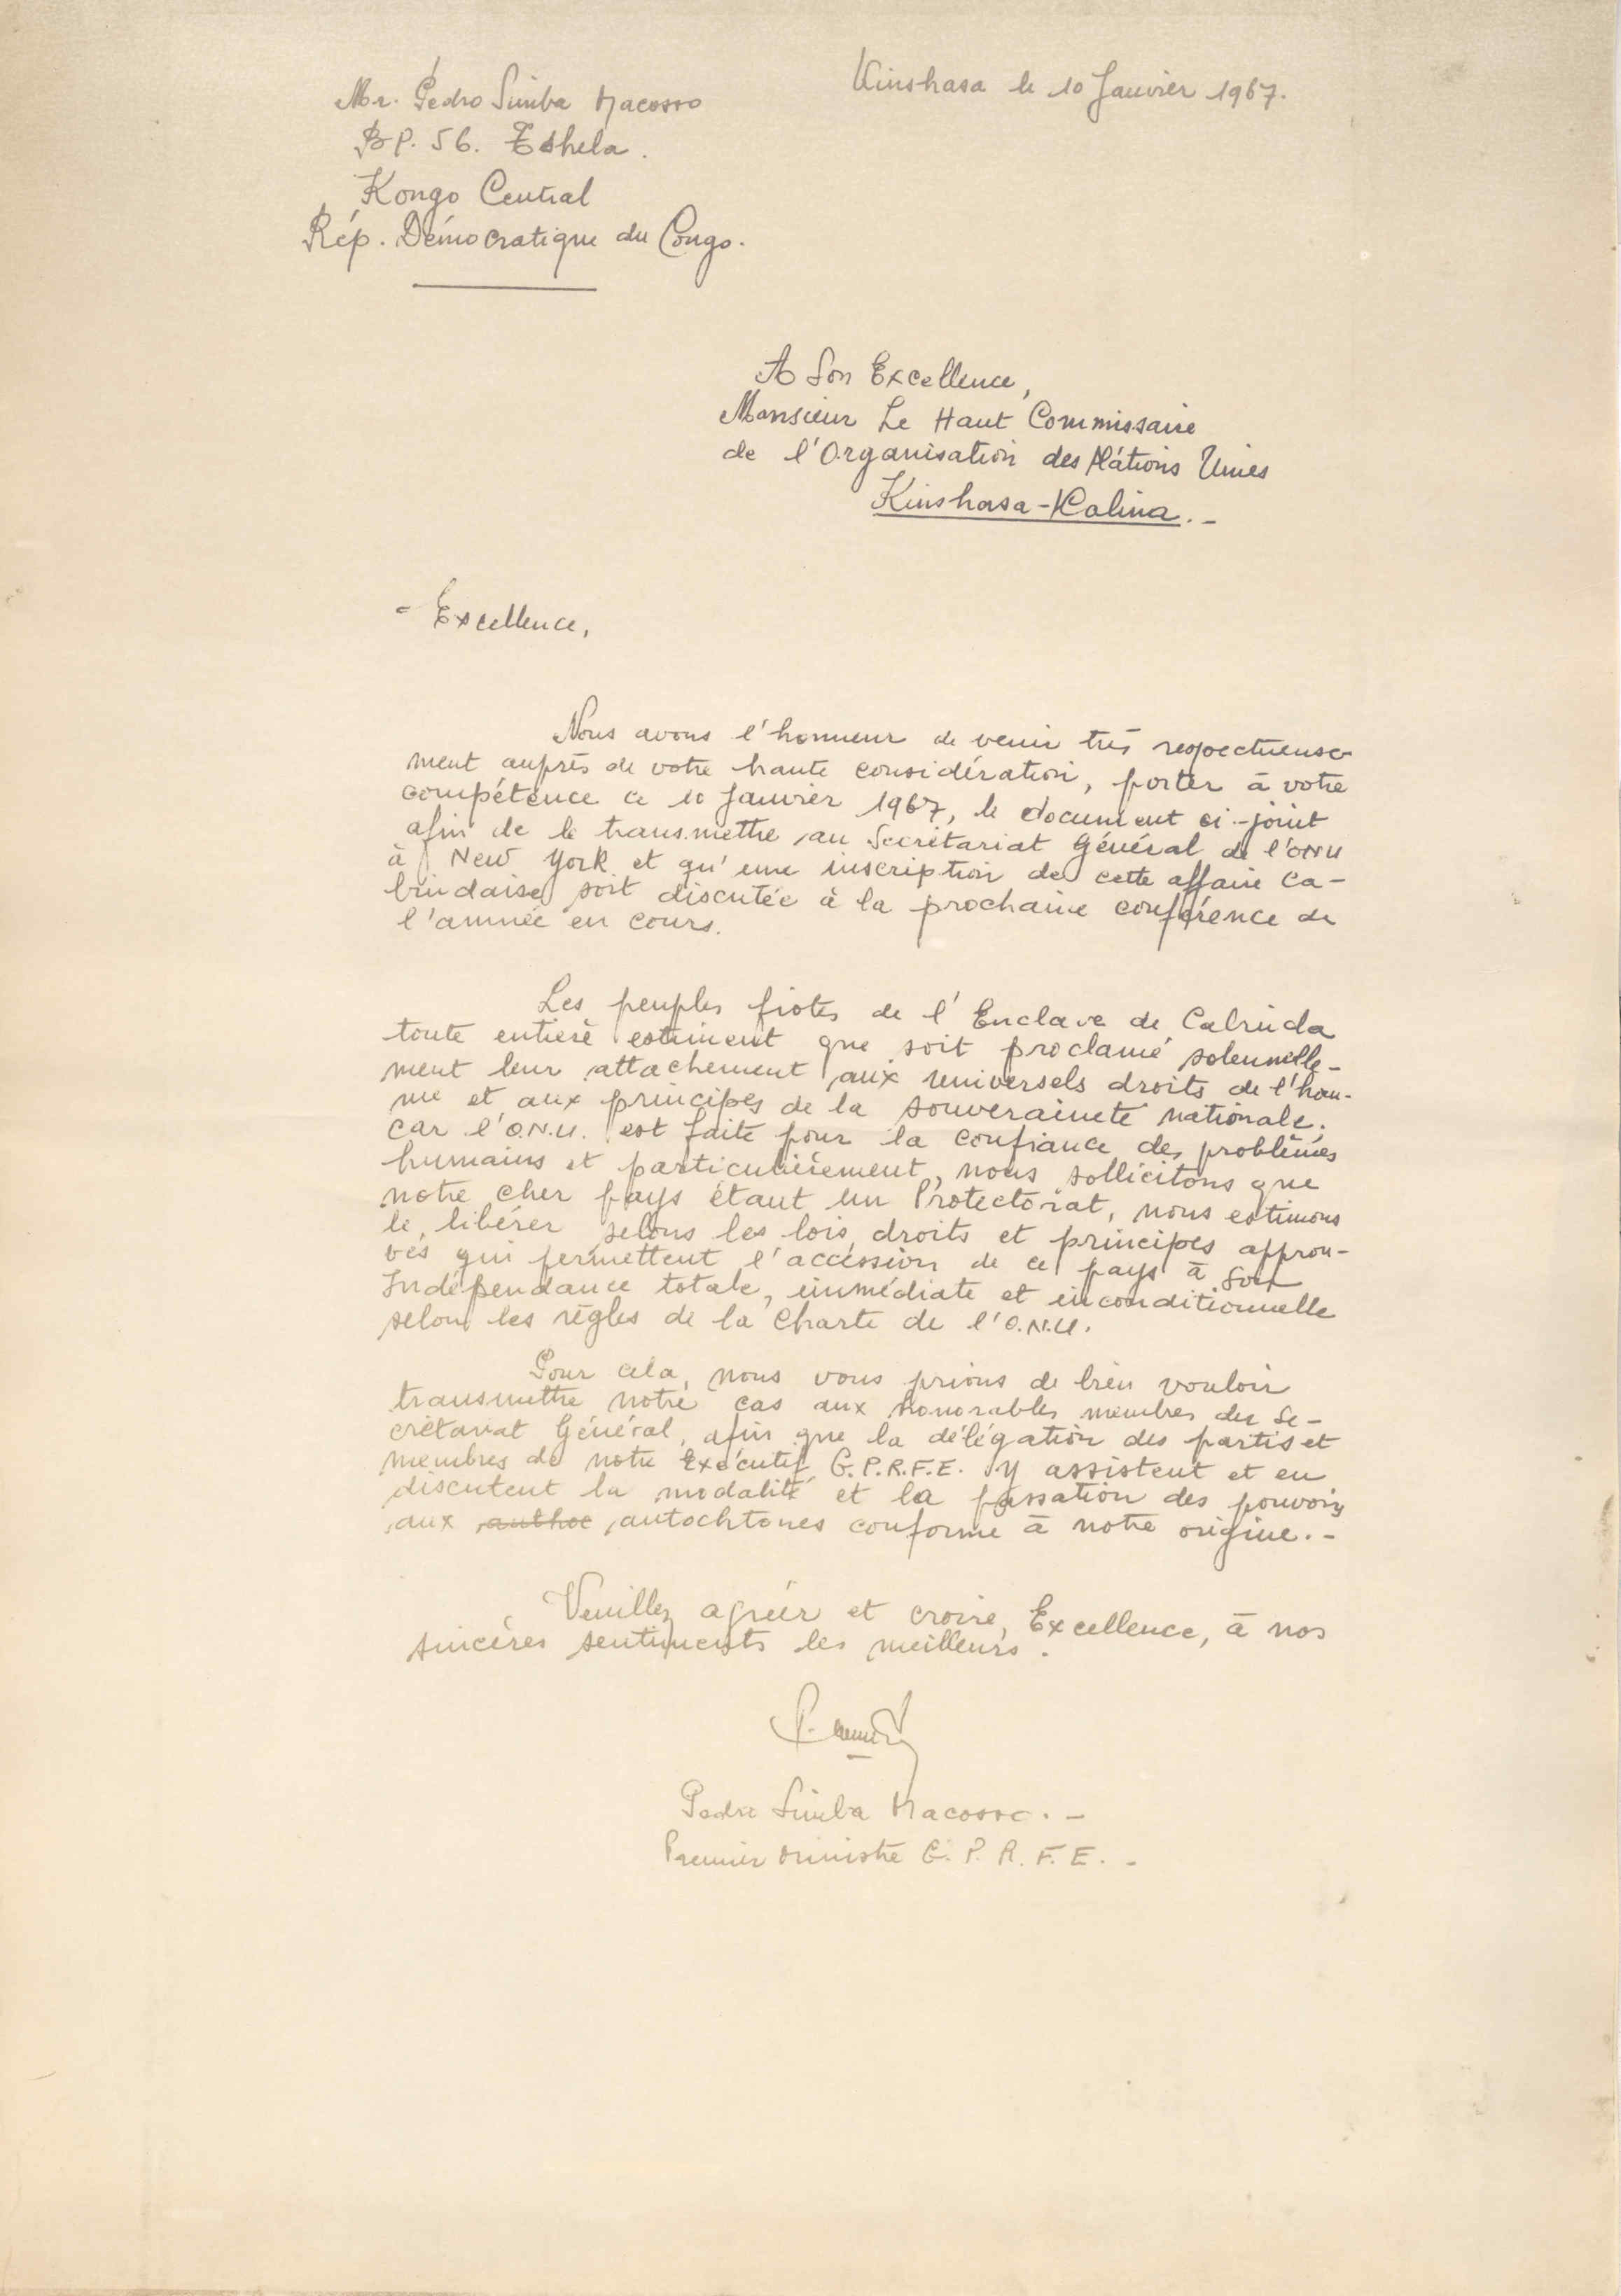 Kinshasa le 10 Janvier 1967.
Mr. Pedro Simba Macosso
B.P. 56. Tshela.
Kongo Central
Rép. Démocratique du Congo.
A Son Excellence,
Monsieur Le Haut Commissaire
de l'Organisation des Nátions Unies
Kinshasa-Kalina.-
- Excellence,
Nous avons l'honneur de venir très respectueuse-
ment auprès de votre haute considération, porter à votre
compétence ce 10 Janvier 1967, le document ci-joint
afin de le transmettre au Secrétariat Général de l'ONU
à New York et qu'une inscription de cette affaire ca-
bindaise soit discutée à la prochaine conférence de
l'année en cours.
Les peuples fiotes de l'Enclave de Cabinda
toute entière estiment que soit proclamé solennelle-
ment leur attachement aux universels droits de l'hom-
me et aux principes de la souveraineté nationale.
Car l'O.N.U. est faite pour la confiance des problèmes
humains et particulièrement, nous sollicitons que
notre cher pays étant un Protectorat, nous estimons
le libérer selons les lois, droits et principes approu-
vés qui permettent l'accession de ce pays à son
Indépendance totale, immédiate et inconditionnelle
selon les règles de la Charte de l'O.N.U.
Pour cela, nous vous prions de bien vouloir
transmettre notre cas aux honorables membres du Se-
crétariat Général, afin que la délégation des partis et
membres de notre Exécutif G.P.R.F.E. y assistent et en
discutent la modalité et la passation des pouvoirs
aux authoc autochtones conforme à notre origine.-
Veuillez agréer et croire, Excellence, à nos
sincères sentiments les meilleurs.
Pedro Simba Macosso.-
Premier Ministre G.P.R.F.E.-